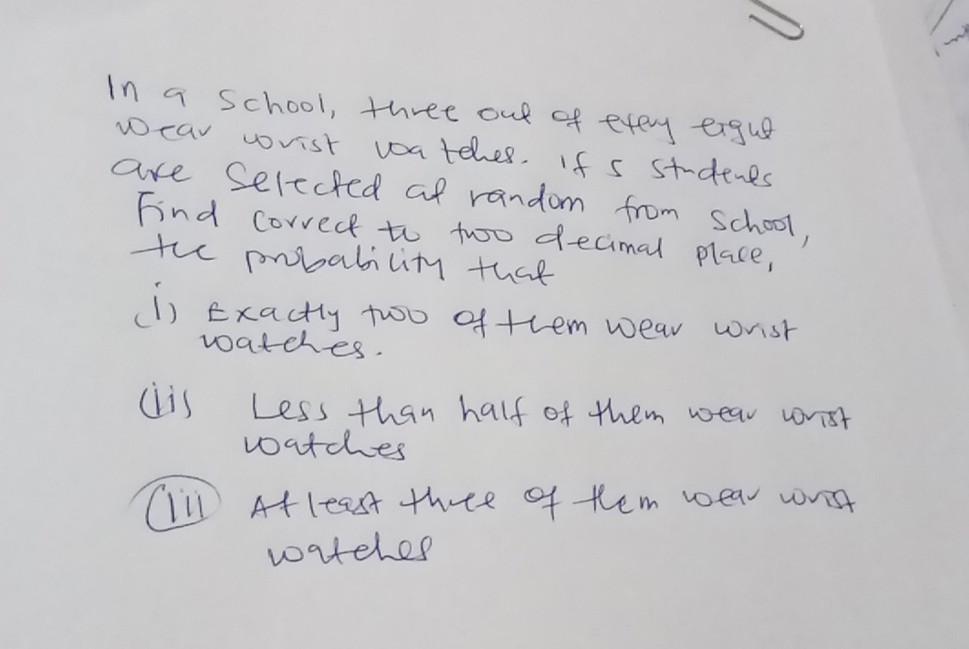 In a School, three out of every eight
wear wrist watches. if 5 students
are Selected at random from School,
Find correct to two decimal place,
the probability that
(i) Exactly two of them wear wrist
watches.
(ii) Less than half of them wear wrist
watches
(iii) At least three of them wear wrist
watches